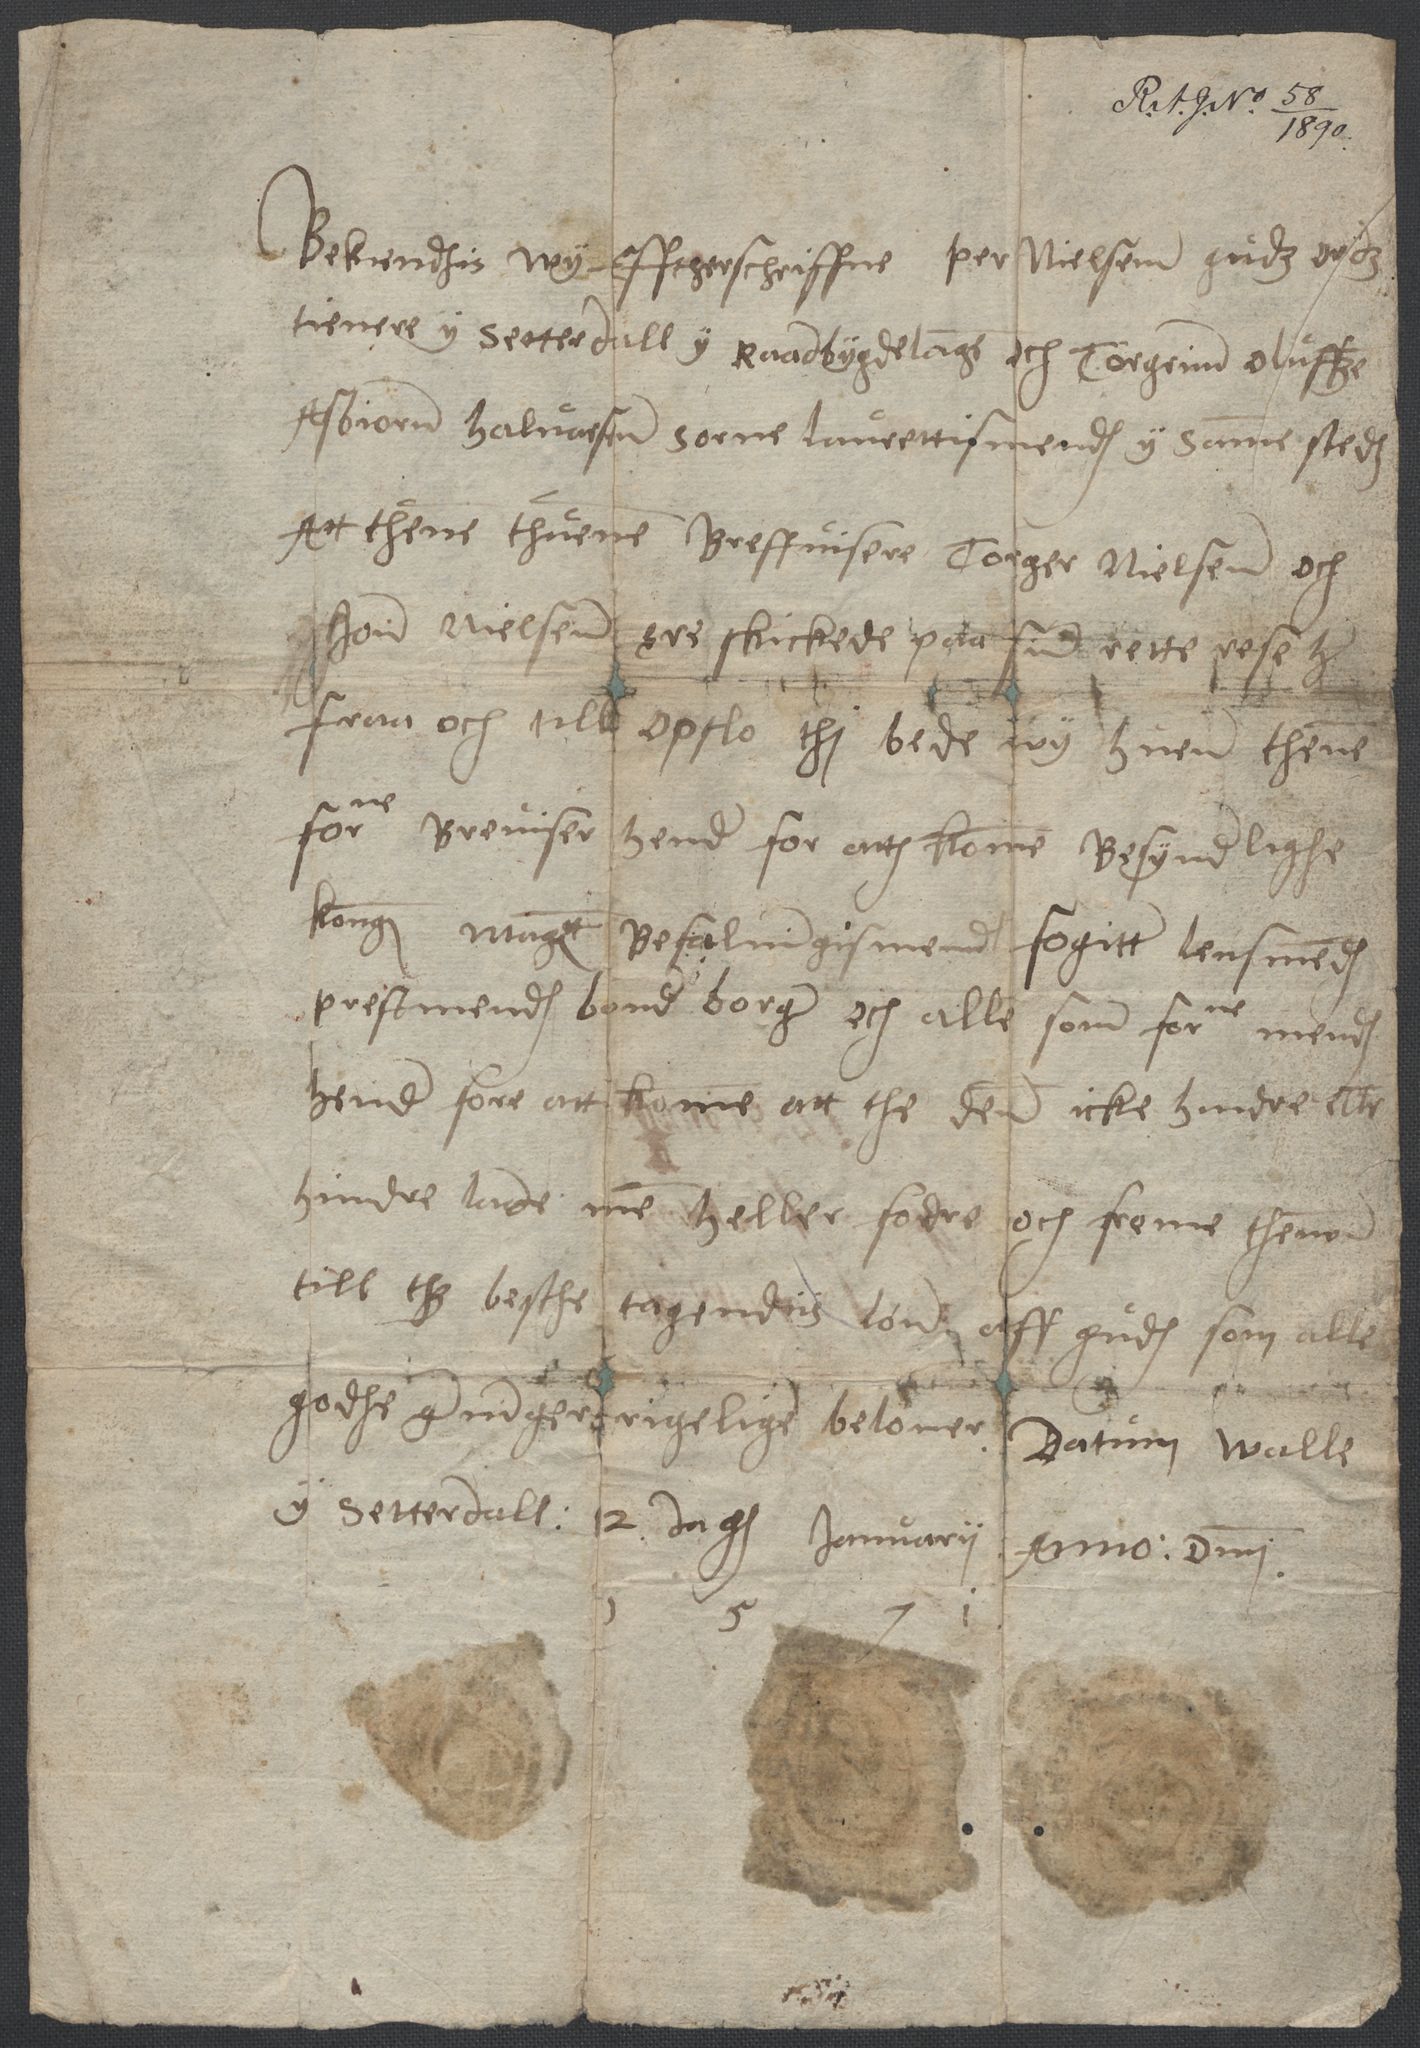 R.A.J.No. 58/1890.
Bekendhis wy Efftherschriffne per Nielsenn gudz ordz
tienere y Setterdall y Raadbygdelage och Torgrimm Oluffze
Asbiornn haluarsenn Sorne laurettismendh y Samme stedz
Att thene thuene Breffuisere Torger Nielsenn och
Jonn Nielsenn ere skickede paa sinn rette rese
fraa och till Opslo thj bede wy huem thene
forne Breuiser hender for atth komme Besynderlighe
kongh Magtt Befalningismend fogitter lensmendh
prestmendh bonder borger och alle som forne mendh
hender fore att komme att the dem icke hindre eller
hindre lade men heller fodre och freme thenum
till thz besthe tagendis lonn aff gudh som alle
godhe gerninger rigelige beloner Datum Walle
y Setterdall: 12 dagh Januarij Anno: Dmnj.
1 5 7 1